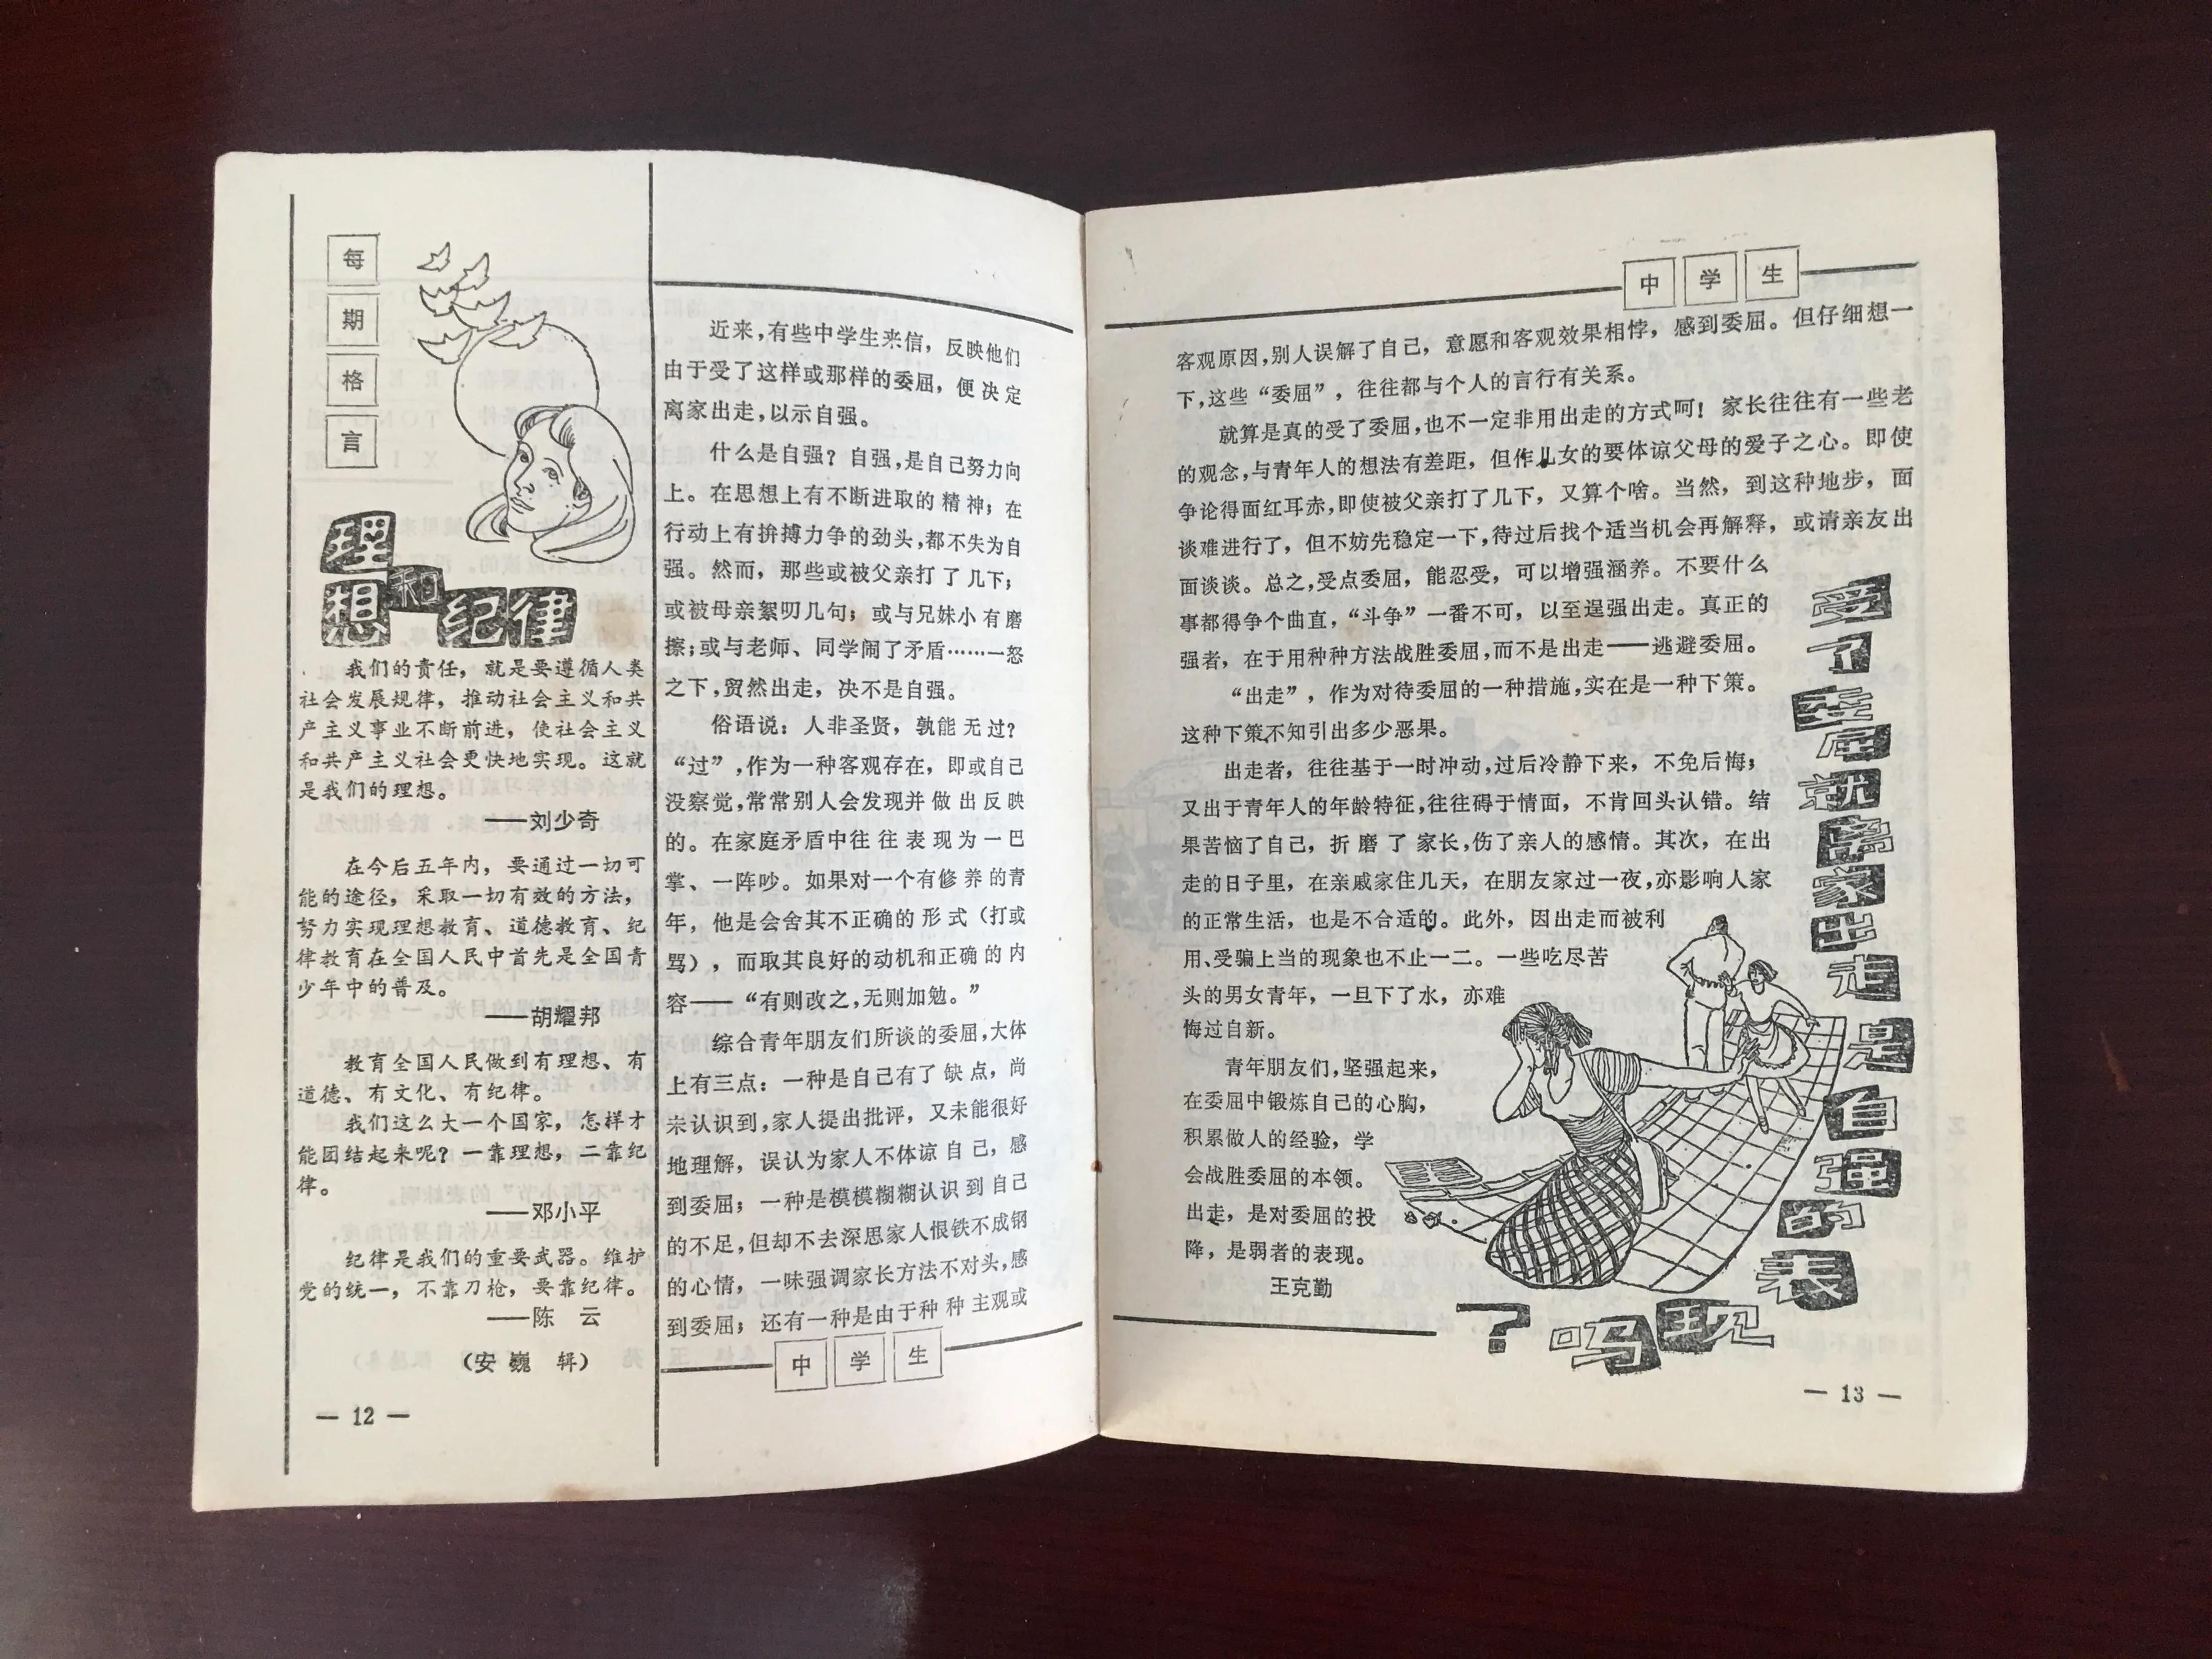 每
期
格
言
理
想和纪律
我们的责任，就是要遵循人类
社会发展规律，推动社会主义和共
产主义事业不断前进，使社会主义
和共产主义社会更快地实现。这就
是我们的理想。
——刘少奇
在今后五年内，要通过一切可
能的途径，采取一切有效的方法，
努力实现理想教育、道德教育、纪
律教育在全国人民中首先是全国青
少年中的普及。
——胡耀邦
教育全国人民做到有理想、有
道德、有文化、有纪律。
我们这么大一个国家，怎样才
能团结起来呢？一靠理想，二靠纪
律。
——邓小平
纪律是我们的重要武器。维护
党的统一，不靠刀枪，要靠纪律。
——陈 云
（安巍 辑）
— 12 —
近来，有些中学生来信，反映他们
由于受了这样或那样的委屈，便决定
离家出走，以示自强。
什么是自强？自强，是自己努力向
上。在思想上有不断进取的精神；在
行动上有拚搏力争的劲头，都不失为自
强。然而，那些或被父亲打了几下；
或被母亲絮叨几句；或与兄妹小有磨
擦；或与老师、同学闹了矛盾……一怒
之下，贸然出走，决不是自强。
俗语说：人非圣贤，孰能无过？
“过”，作为一种客观存在，即或自己
没察觉，常常别人会发现并做出反映
的。在家庭矛盾中往往表现为一巴
掌、一阵吵。如果对一个有修养的青
年，他是会舍其不正确的形式（打或
骂），而取其良好的动机和正确的内
容——“有则改之，无则加勉。”
综合青年朋友们所谈的委屈，大体
上有三点：一种是自己有了缺点，尚
未认识到，家人提出批评，又未能很好
地理解，误认为家人不体谅自己，感
到委屈；一种是模模糊糊认识到自己
的不足，但却不去深思家人恨铁不成钢
的心情，一味强调家长方法不对头，感
到委屈；还有一种是由于种种主观或
中学生
中学生
客观原因，别人误解了自己，意愿和客观效果相悖，感到委屈。但仔细想一
下，这些“委屈”，往往都与个人的言行有关系。
就算是真的受了委屈，也不一定非用出走的方式呵！家长往往有一些老
的观念，与青年人的想法有差距，但作儿女的要体谅父母的爱子之心。即使
争论得面红耳赤，即使被父亲打了几下，又算个啥。当然，到这种地步，面
谈难进行了，但不妨先稳定一下，待过后找个适当机会再解释，或请亲友出
面谈谈。总之，受点委屈，能忍受，可以增强涵养。不要什么
事都得争个曲直，“斗争”一番不可，以至逞强出走。真正的
强者，在于用种种方法战胜委屈，而不是出走——逃避委屈。
“出走”，作为对待委屈的一种措施，实在是一种下策。
这种下策不知引出多少恶果。
出走者，往往基于一时冲动，过后冷静下来，不免后悔；
又出于青年人的年龄特征，往往碍于情面，不肯回头认错。结
果苦恼了自己，折磨了家长，伤了亲人的感情。其次，在出
走的日子里，在亲戚家住几天，在朋友家过一夜，亦影响人家
的正常生活，也是不合适的。此外，因出走而被利
用、受骗上当的现象也不止一二。一些吃尽苦
头的男女青年，一旦下了水，亦难
悔过自新。
青年朋友们，坚强起来，
在委屈中锻炼自己的心胸，
积累做人的经验，学
会战胜委屈的本领。
出走，是对委屈的投
降，是弱者的表现。
王克勤
受了委屈就离家出走是自强的表现吗？
— 13 —